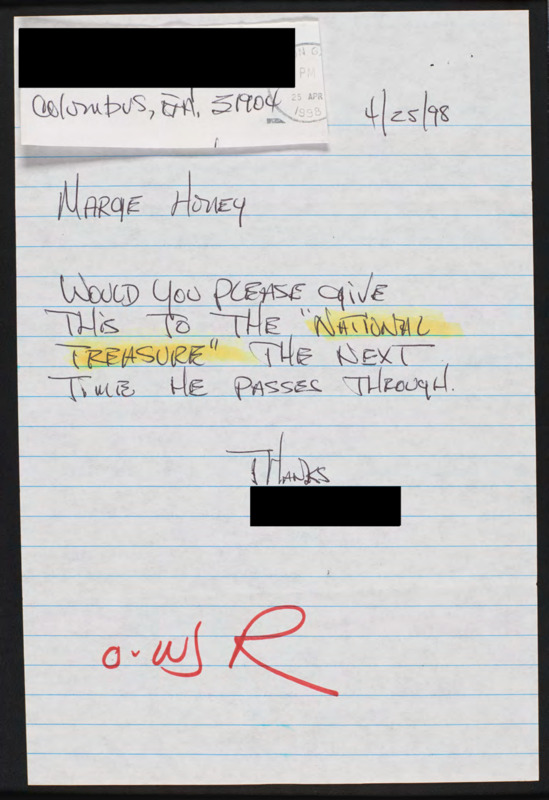 Columbus, GA. 31904
PM
25 APR
1998
4/25/98
Margie Honey
Would you please give
this to the "National
Treasure" the next
time he passes through.
Thanks
R